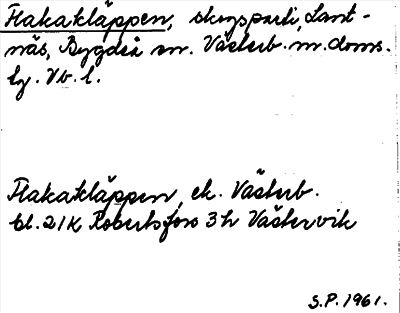 Flakakläppen, skogsparti, Lant-
näs, Bygdeå sn. Västerb. m. doms.
lg. Vb. l.
Flakakläppen, ek. Västerb.
bl. 21K Robertsfors 3h Västervik
S.P. 1961.